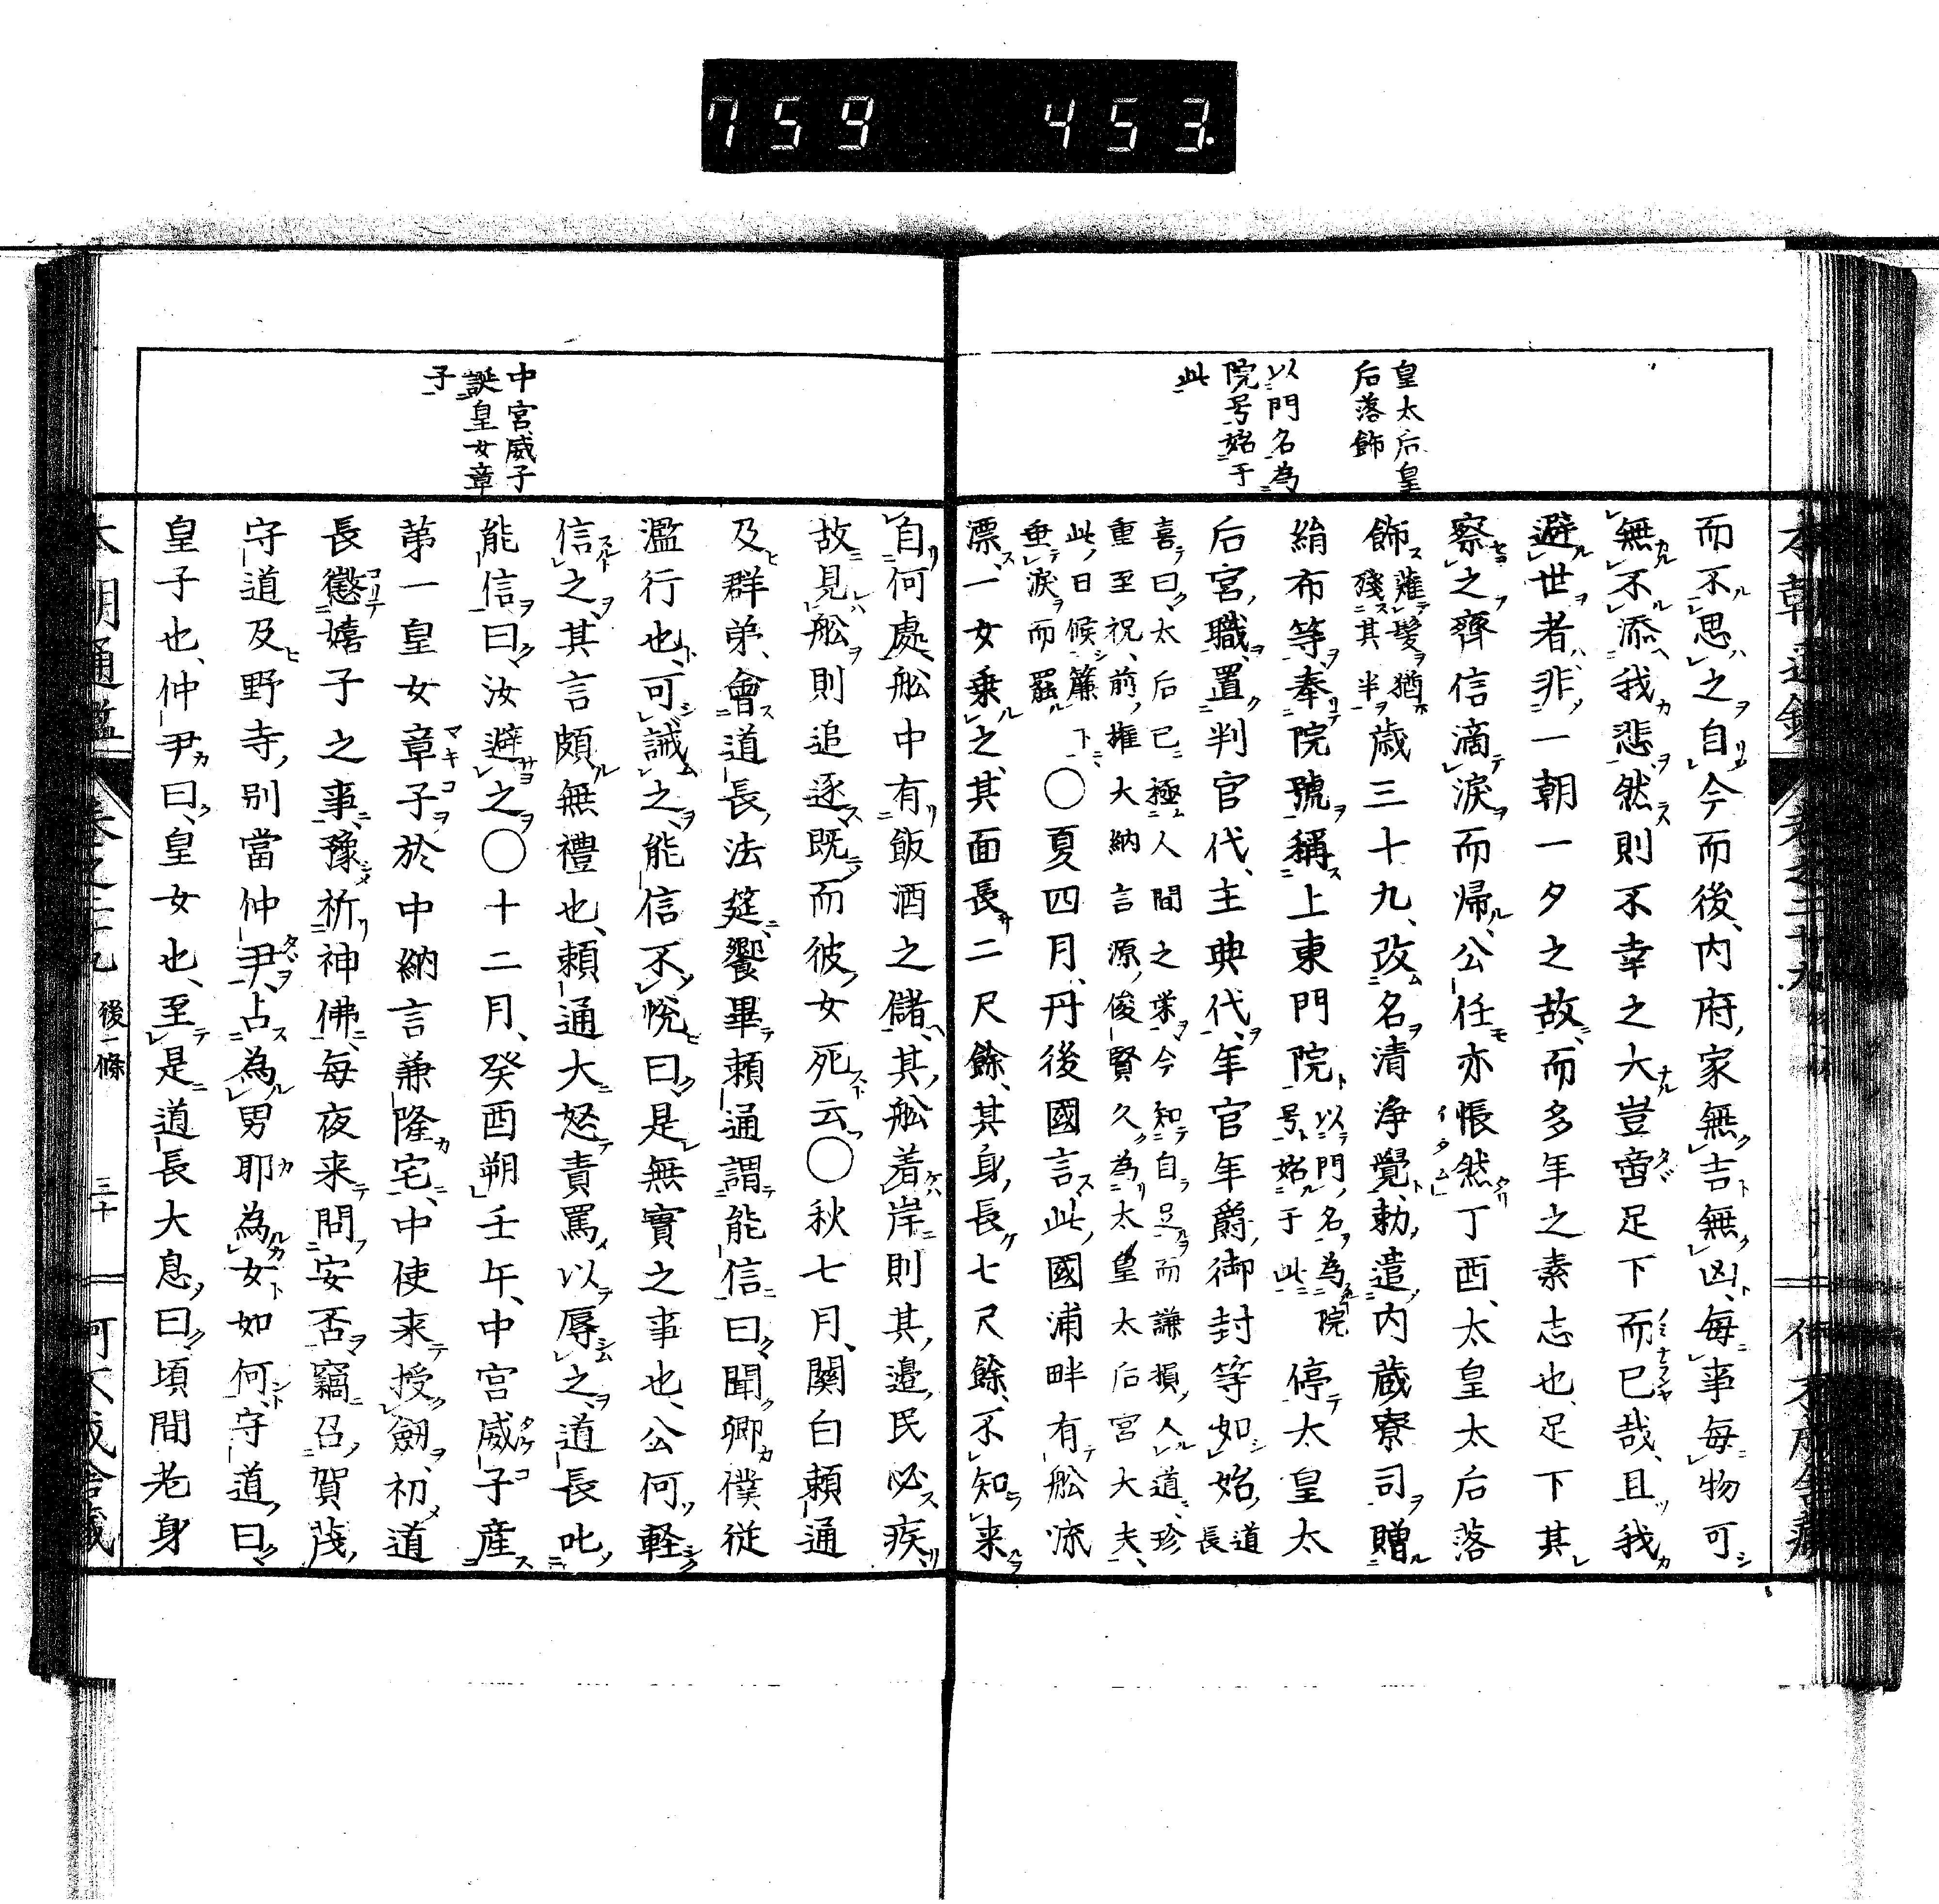 759 453
皇太后皇
后落飾
以門名為
院号始于
此
而不思之自今而後内府家無吉無凶毎事毎物可
無不添我悲然則不幸之大豈啻足下而已哉且我
避世者非一朝一夕之故而多年之素志也足下其
察之齊信滴涙而帰公任亦悵然丁酉太皇太后落
飾薙髪猶殘其半歳三十九改名清浄覺勅遣内蔵寮司贈
絹布等奉院號稱上東門院以門名為院号始于此停太皇太
后宮職置判官代主典代年官年爵御封等如始道長
喜曰太后已極人間之栄今知自足而謙損人道珍
重至祝前権大納言源俊賢久為太皇太后宮大夫
此日候簾下垂涙而罷〇夏四月丹後國言此國浦畔有舩流
漂一女乗之其面長二尺餘其身長七尺餘不知来
自何處舩中有飯酒之儲其舩着岸則其邉民必疾
故見舩則追逐既而彼女死云〇秋七月關白頼通
及群弟會道長法莚饗畢頼通謂能信曰聞卿僕従
濫行也可誡之能信不悦曰是無實之事也公何軽
信之其言頗無禮也頼通大怒責罵以辱之道長叱
能信曰汝避之〇十二月癸酉朔壬午中宮威子産
第一皇女章子於中納言兼隆宅中使来授劔初道
長懲嬉子之事豫祈神佛毎夜来問安否竊召賀茂
守道及野寺別當仲尹占為男耶為女如何守道曰
皇子也仲尹曰皇女也至是道長大息曰頃間老身
中宮威子
誕皇女章
子
後一條
三十